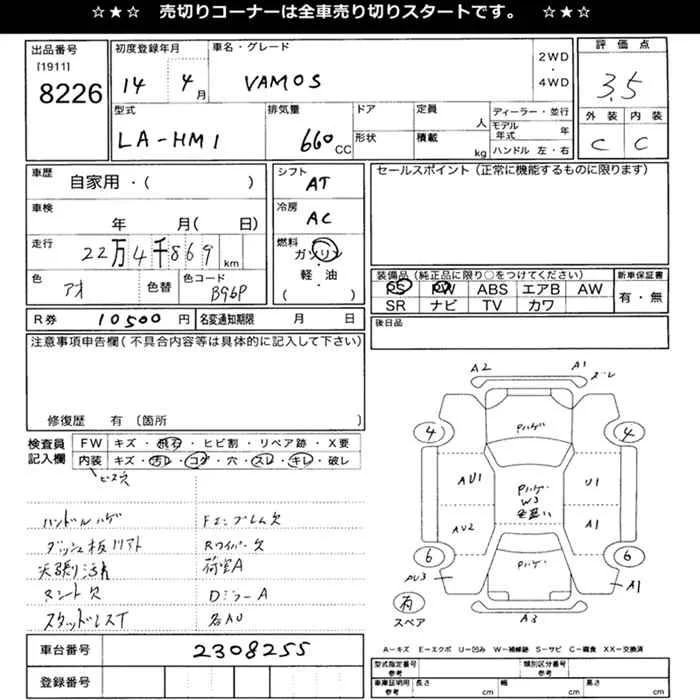 ☆★☆ 売切りコーナーは全車売り切りスタートです。 ☆★☆
出品番号
[1911]
8226
初度登録年月
14 4月
車名・グレード
VAMOS
2WD
・
4WD
評価点
3.5
外装 内装
C C
型式
LA-HM1
排気量
660 CC
ドア
形状
定員
人
積載
kg
ディーラー・並行
モデル年式 年
ハンドル 左・右
車歴
自家用・( )
車検
年 月( 日)
走行
22万4千869 km
色
アオ
色替
色コード
B96P
シフト
AT
冷房
AC
燃料
ガソリン
・
軽油
( )
セールスポイント(正常に機能するものに限ります)
装備品(純正品に限り○をつけてください)
PS PW ABS エアB AW
SR ナビ TV カワ
新車保証書
有・無
R券 10500 円
名変通知期限 月 日
後日品
注意事項申告欄(不具合内容等は具体的に記入して下さい)
修復歴 有 〔箇所 〕
検査員
記入欄
FW キズ・飛石・ヒビ割・リペア跡・X要
内装 キズ・汚レ・コゲ・穴・スレ・キレ・破レ
ビス穴
ハンドルハゲ
Fエンブレム欠
ダッシュ板
Rワイパー欠
天張汚れ
荷室A
マット欠
DミラーA
スタッドレスT
各AU
A2 A1
ズレ
Pハゲ
4 4
AU1 U1
Pハゲ
W3
AU2 A1
6 6
Pハゲ
AU3 A1
有
スペア
A3
A－キズ E－エクボ U－凹み W－補修跡 S－サビ C－腐食 XX－交換済
車台番号
2308255
登録番号
型式指定番号
参考
類別区分番号
参考
車庫証明用
参考
長さ cm 幅 cm 高さ cm